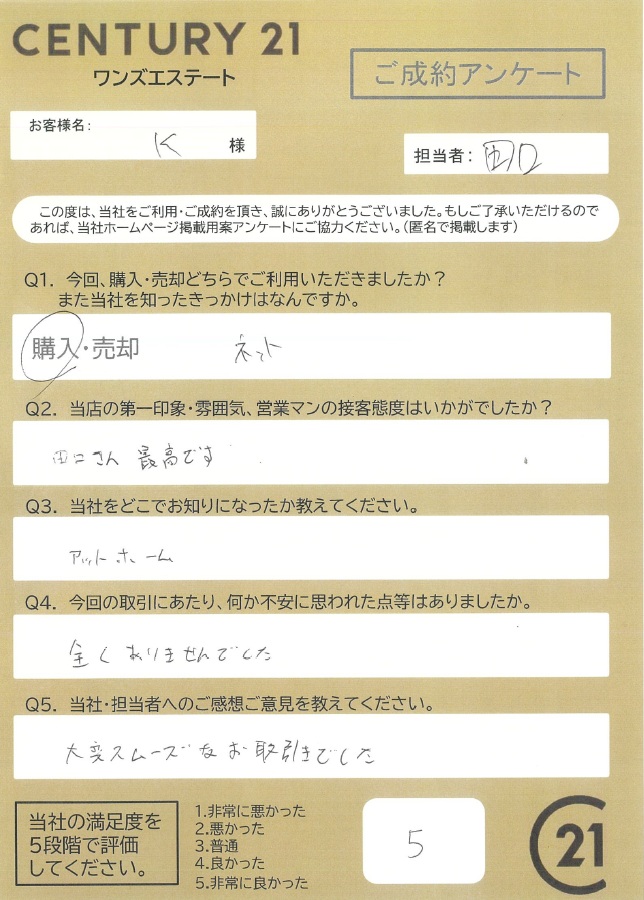 CENTURY 21
ワンズエステート
ご成約アンケート
お客様名: K 様
担当者: 田口
この度は、当社をご利用・ご成約を頂き、誠にありがとうございました。もしご了承いただけるので
あれば、当社ホームページ掲載用案アンケートにご協力ください。(匿名で掲載します)
Q1. 今回、購入・売却どちらでご利用いただきましたか?
また当社を知ったきっかけはなんですか。
購入・売却 ネット
Q2. 当店の第一印象・雰囲気、営業マンの接客態度はいかがでしたか?
田口さん 最高です
Q3. 当社をどこでお知りになったか教えてください。
アットホーム
Q4. 今回の取引にあたり、何か不安に思われた点等はありましたか。
全くありませんでした
Q5. 当社・担当者へのご感想ご意見を教えてください。
大変スムーズなお取引きでした
当社の満足度を
5段階で評価
してください。
1.非常に悪かった
2.悪かった
3.普通
4.良かった
5.非常に良かった
5
C21